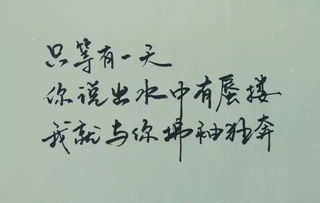 只等有一天
你说出水中有蜃楼
我就与你拂袖狂奔